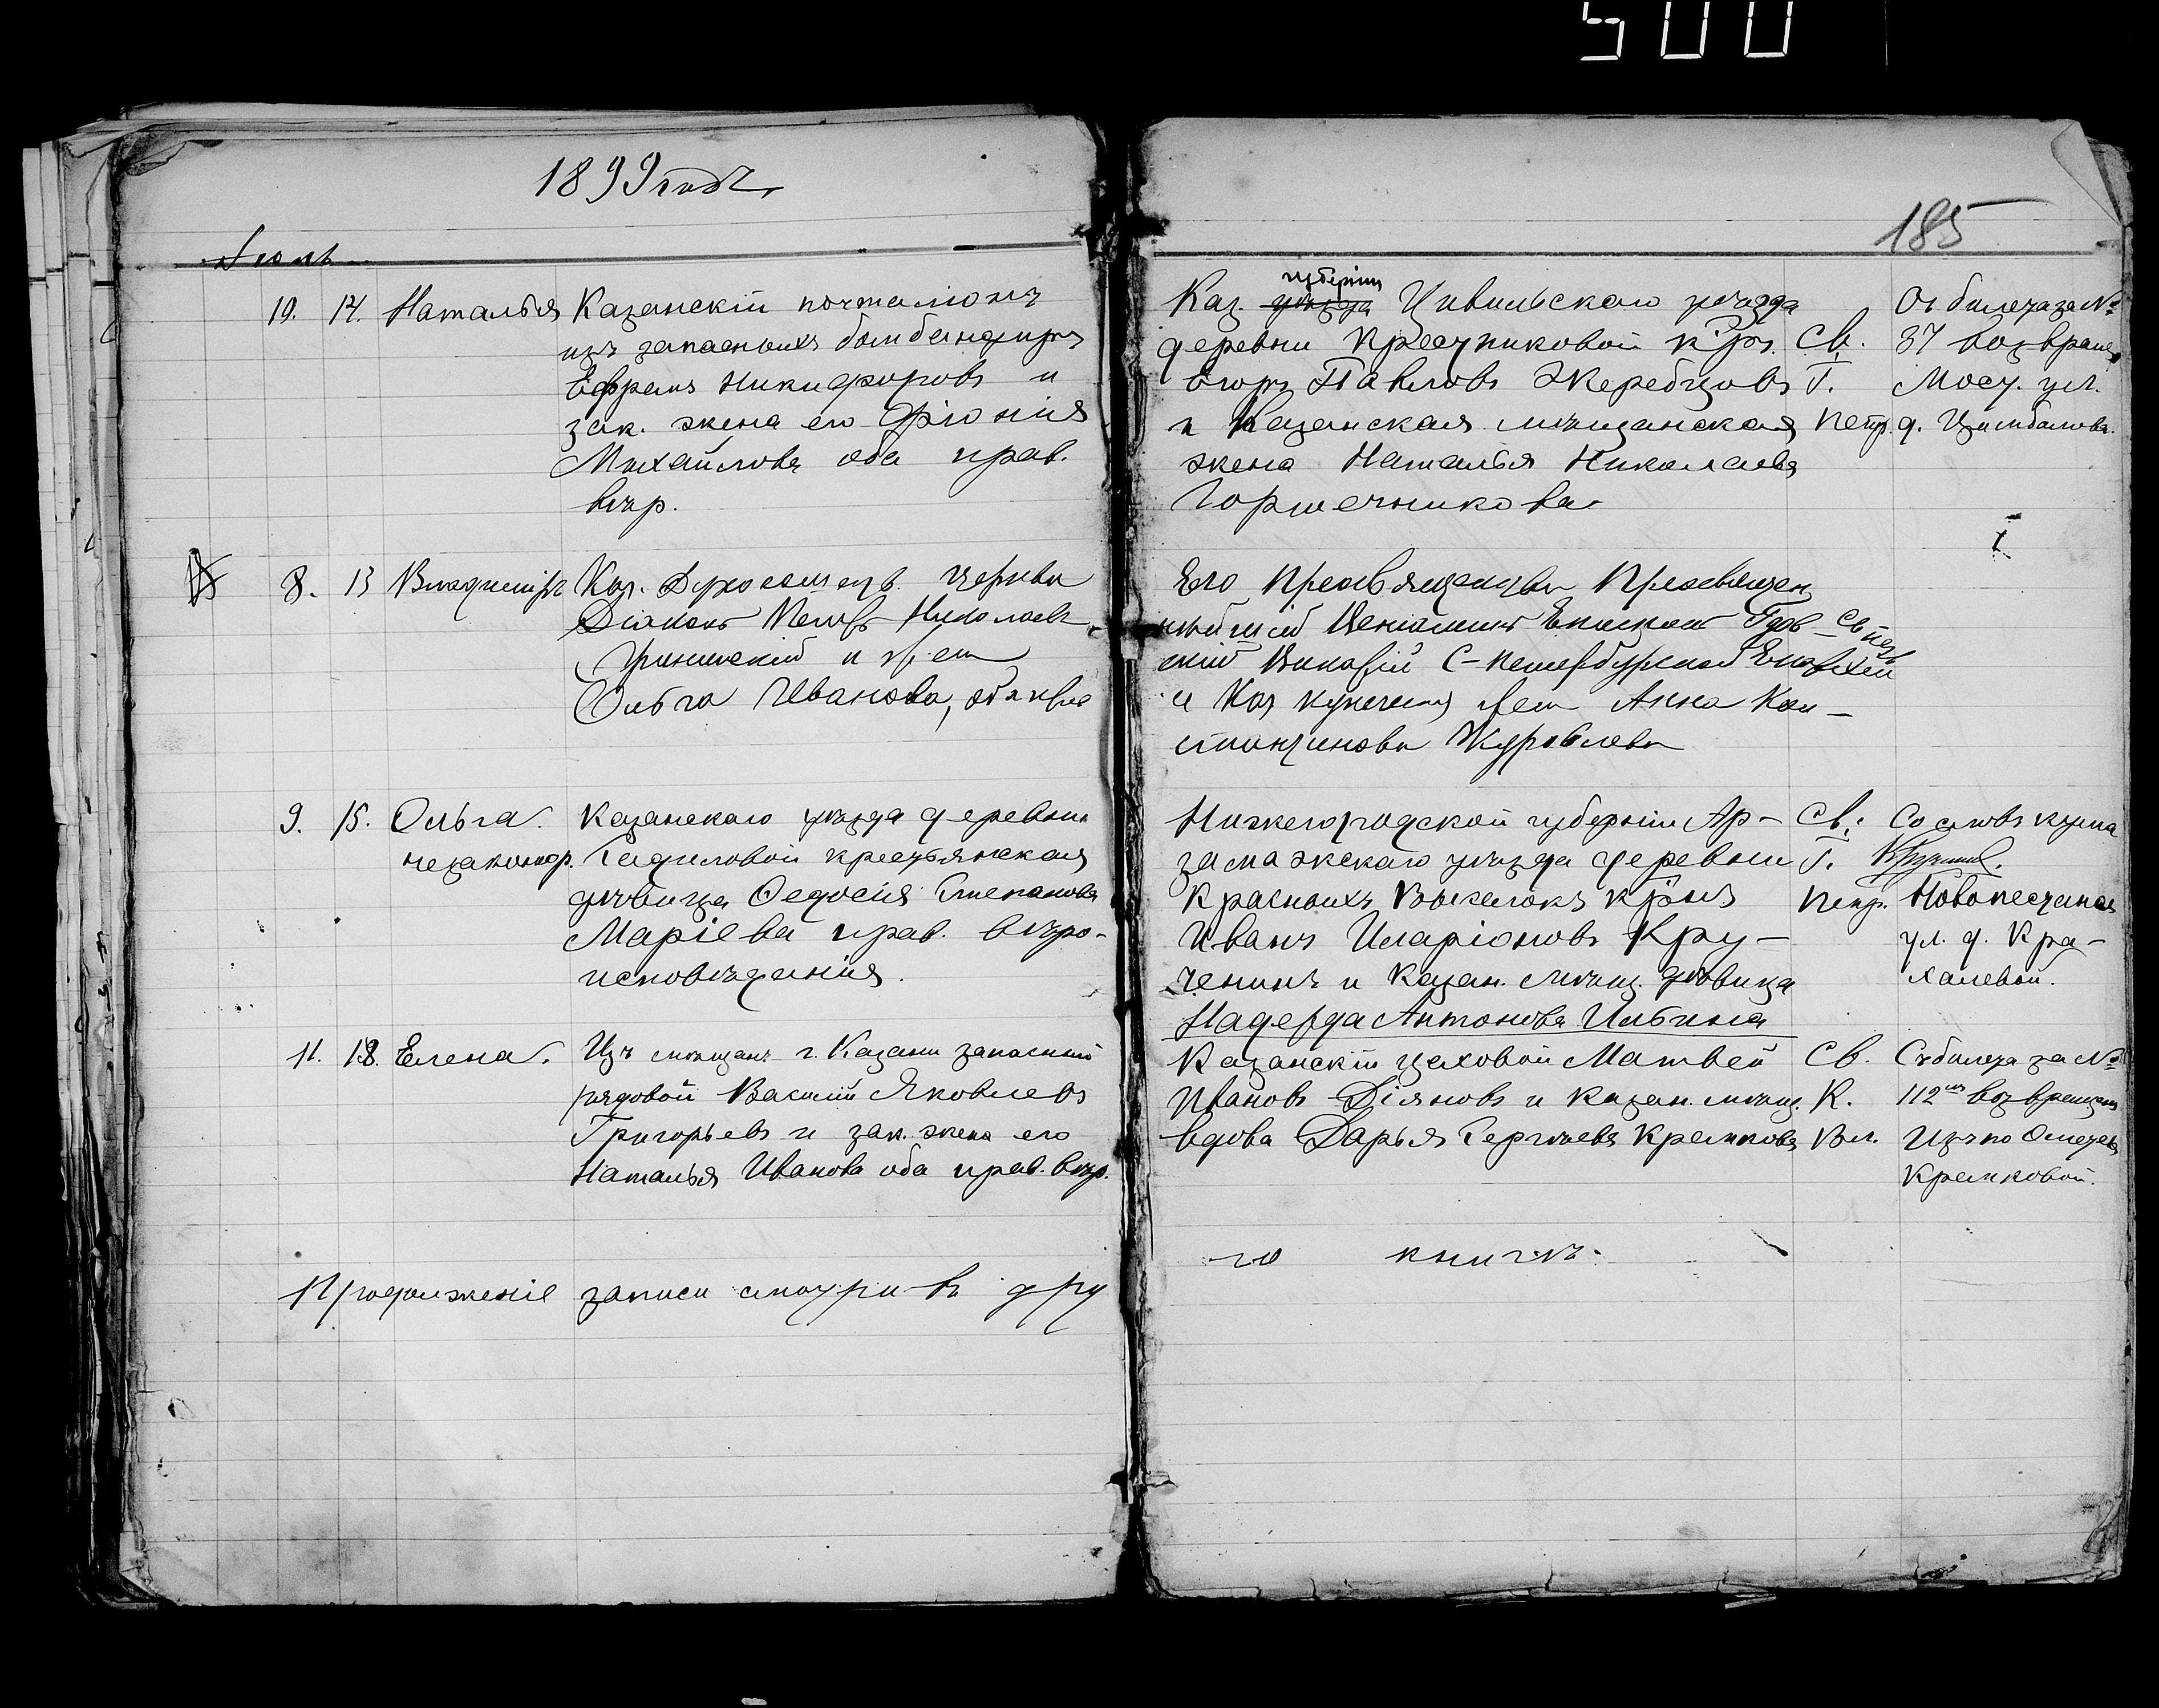 500
1899 годъ
185
Іюль
10. 14. Наталья Казанскій почталіонъ
изъ запасныхъ бомбандиръ
Ефремъ Никифоровъ и
зак. жена его Фіонія
Михайлова оба прав.
вѣр.
губерніи
Каз. уѣзда Цивильскаго уѣзда
деревни крес.
Егоръ Павловъ Жеребцовъ
и Казанская мѣщанская
жена Наталья Николаева
Горшечникова
Св.
Г.
Петр.
билета за №
37 возвращ.
Мост. ул.
д. Цимбалова.
8. 13 Владиміръ Каз. Духосошеств. церкви
Діаконъ Петръ Николаевъ
и жена
Ольга Иванова, оба прав
Его Преосвященство Преосвящен
нѣйшій Веніаминъ Епископъ Гдов-
скій Викарій С-Петербургской Епархіи
и Каз купеческая жена Анна Кон-
стантинова Журавлева
9. 15. Ольга. Казанскаго уѣзда деревни
незаконнор. крестьянская
дѣвица Ѳедосія Степанова
Маріева прав. вѣро-
исповѣданія.
Нижегородской губерніи Ар-
замажскаго уѣзда деревни
Красныхъ Выселокъ кр-нъ
Иванъ Иларіоновъ Кру-
ченинъ и Казан. мѣщ. дѣвица
Надежда Антонова Ильина
Св.
Г.
Петр.
Со словъ кума
Новопесчаная
ул. д. Кра-
халевой.
11. 18. Елена. Изъ мѣщанъ г. Казани запасный
рядовой Василій Яковлевъ
Григорьевъ и зак. жена его
Наталья Иванова оба прав. вѣр.
Казанскій цеховой Матвей
Ивановъ Діяновъ и казан. мѣщ.
вдова Дарья Сергѣева Крепкова
Св.
К.
Вл.
Съ билета за №
112 возвращен
Крепковой.
Продолженіе записи смотри въ дру
го книгѣ.